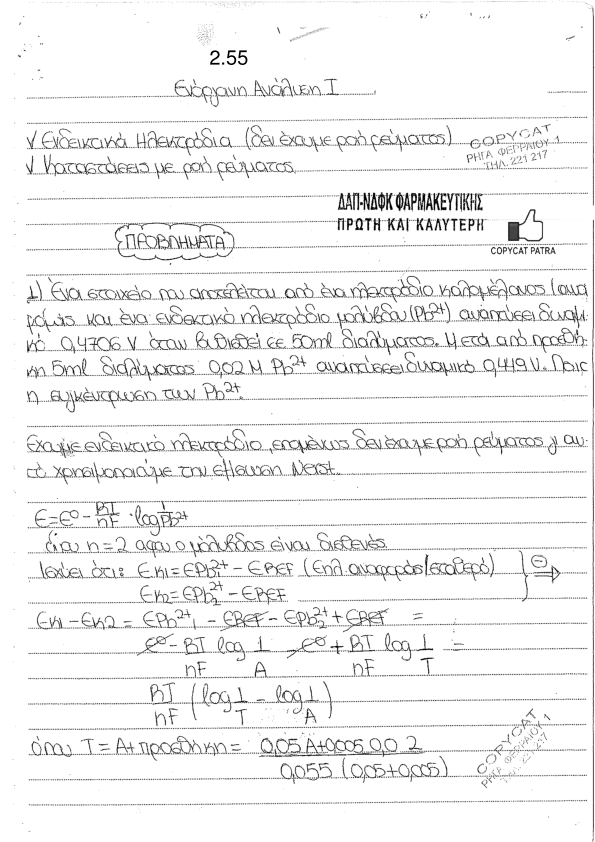 2.55
Ενόργανη Ανάλυση Ι
√ Ενδεικτικά Ηλεκτρόδια (δεν έχουμε ροή ρεύματος)
√ Καταστάσεις με ροή ρεύματος
COPYCAT
ΡΗΓΑ ΦΕΡΡΑΙΟΥ 1
ΤΗΛ. 221 217
ΔΑΠ-ΝΔΦΚ ΦΑΡΜΑΚΕΥΤΙΚΗΣ
ΠΡΩΤΗ ΚΑΙ ΚΑΛΥΤΕΡΗ
COPYCAT PATRA
ΠΡΟΒΛΗΜΑΤΑ
1) Ένα στοιχείο που αποτελείται από ένα ηλεκτρόδιο καλομέλανος (ανα
φοράς και ένα ενδεικτικό ηλεκτρόδιο μολύβδου (Pb²⁺) αναπτύσσει δυναμι
κό 0,4706 V όταν βυθισθεί σε 50ml διαλύματος. Μετά από προσθή
κη 5ml διαλύματος 0,02 M Pb²⁺ αναπτύσσει δυναμικό 0,449 V. Ποια
η συγκέντρωση των Pb²⁺.
Έχουμε ενδεικτικό ηλεκτρόδιο, επομένως δεν έχουμε ροή ρεύματος γι αυ-
τό χρησιμοποιούμε την εξίσωση Nerst.
E=E⁰ - RT/nF · log 1/Pb²⁺
όπου n=2 αφού ο μόλυβδος είναι δισθενής
Ισχύει ότι: Eκ1 = EPb₁²⁺ - EREF (Επλ. αναφοράς/σταθερό) } ⊖ ⇒
Eκ2 = EPb₂²⁺ - EREF
Eκ1 - Eκ2 = EPb²⁺₁ - EREF - EPb₂²⁺ + EREF =
E⁰ - RT/nF log 1/A - E⁰ + RT/nF log 1/T =
RT/nF (log 1/T - log 1/A)
όπου T = A + προσθήκη = 0,05 A + 0,005 · 0,02 / 0,055 (0,05+0,005)
COPYCAT
ΡΗΓΑ ΦΕΡΡΑΙΟΥ 1
ΤΗΛ. 221 217